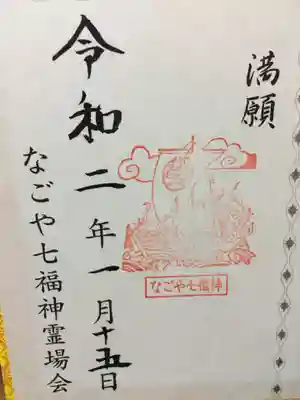 満願
なごや七福神
令和二年一月十五日
なごや七福神霊場会